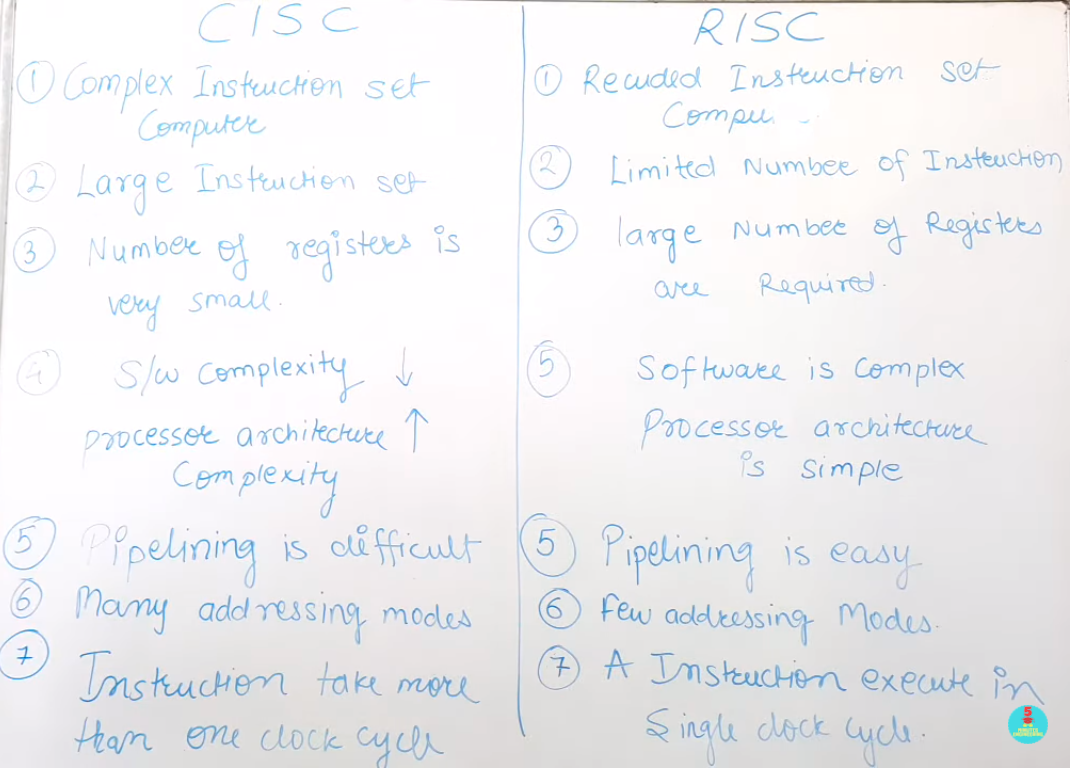 CISC
① Complex Instruction set
Computer
② Large Instruction set
③ Number of registers is
very small.
④ S/w complexity ↓
processor architecture ↑
Complexity
⑤ Pipelining is difficult
⑥ Many addressing modes
⑦ Instruction take more
than one clock cycle
RISC
① Recuded Instruction set
Compu
② Limited Number of Instruction
③ large Number of Registers
are Required.
⑤ Software is Complex
Processor architecture
is simple
⑤ Pipelining is easy
⑥ Few addressing Modes.
⑦ A Instruction execute in
Single clock cycle.
5
MINUTES
ENGINEERING